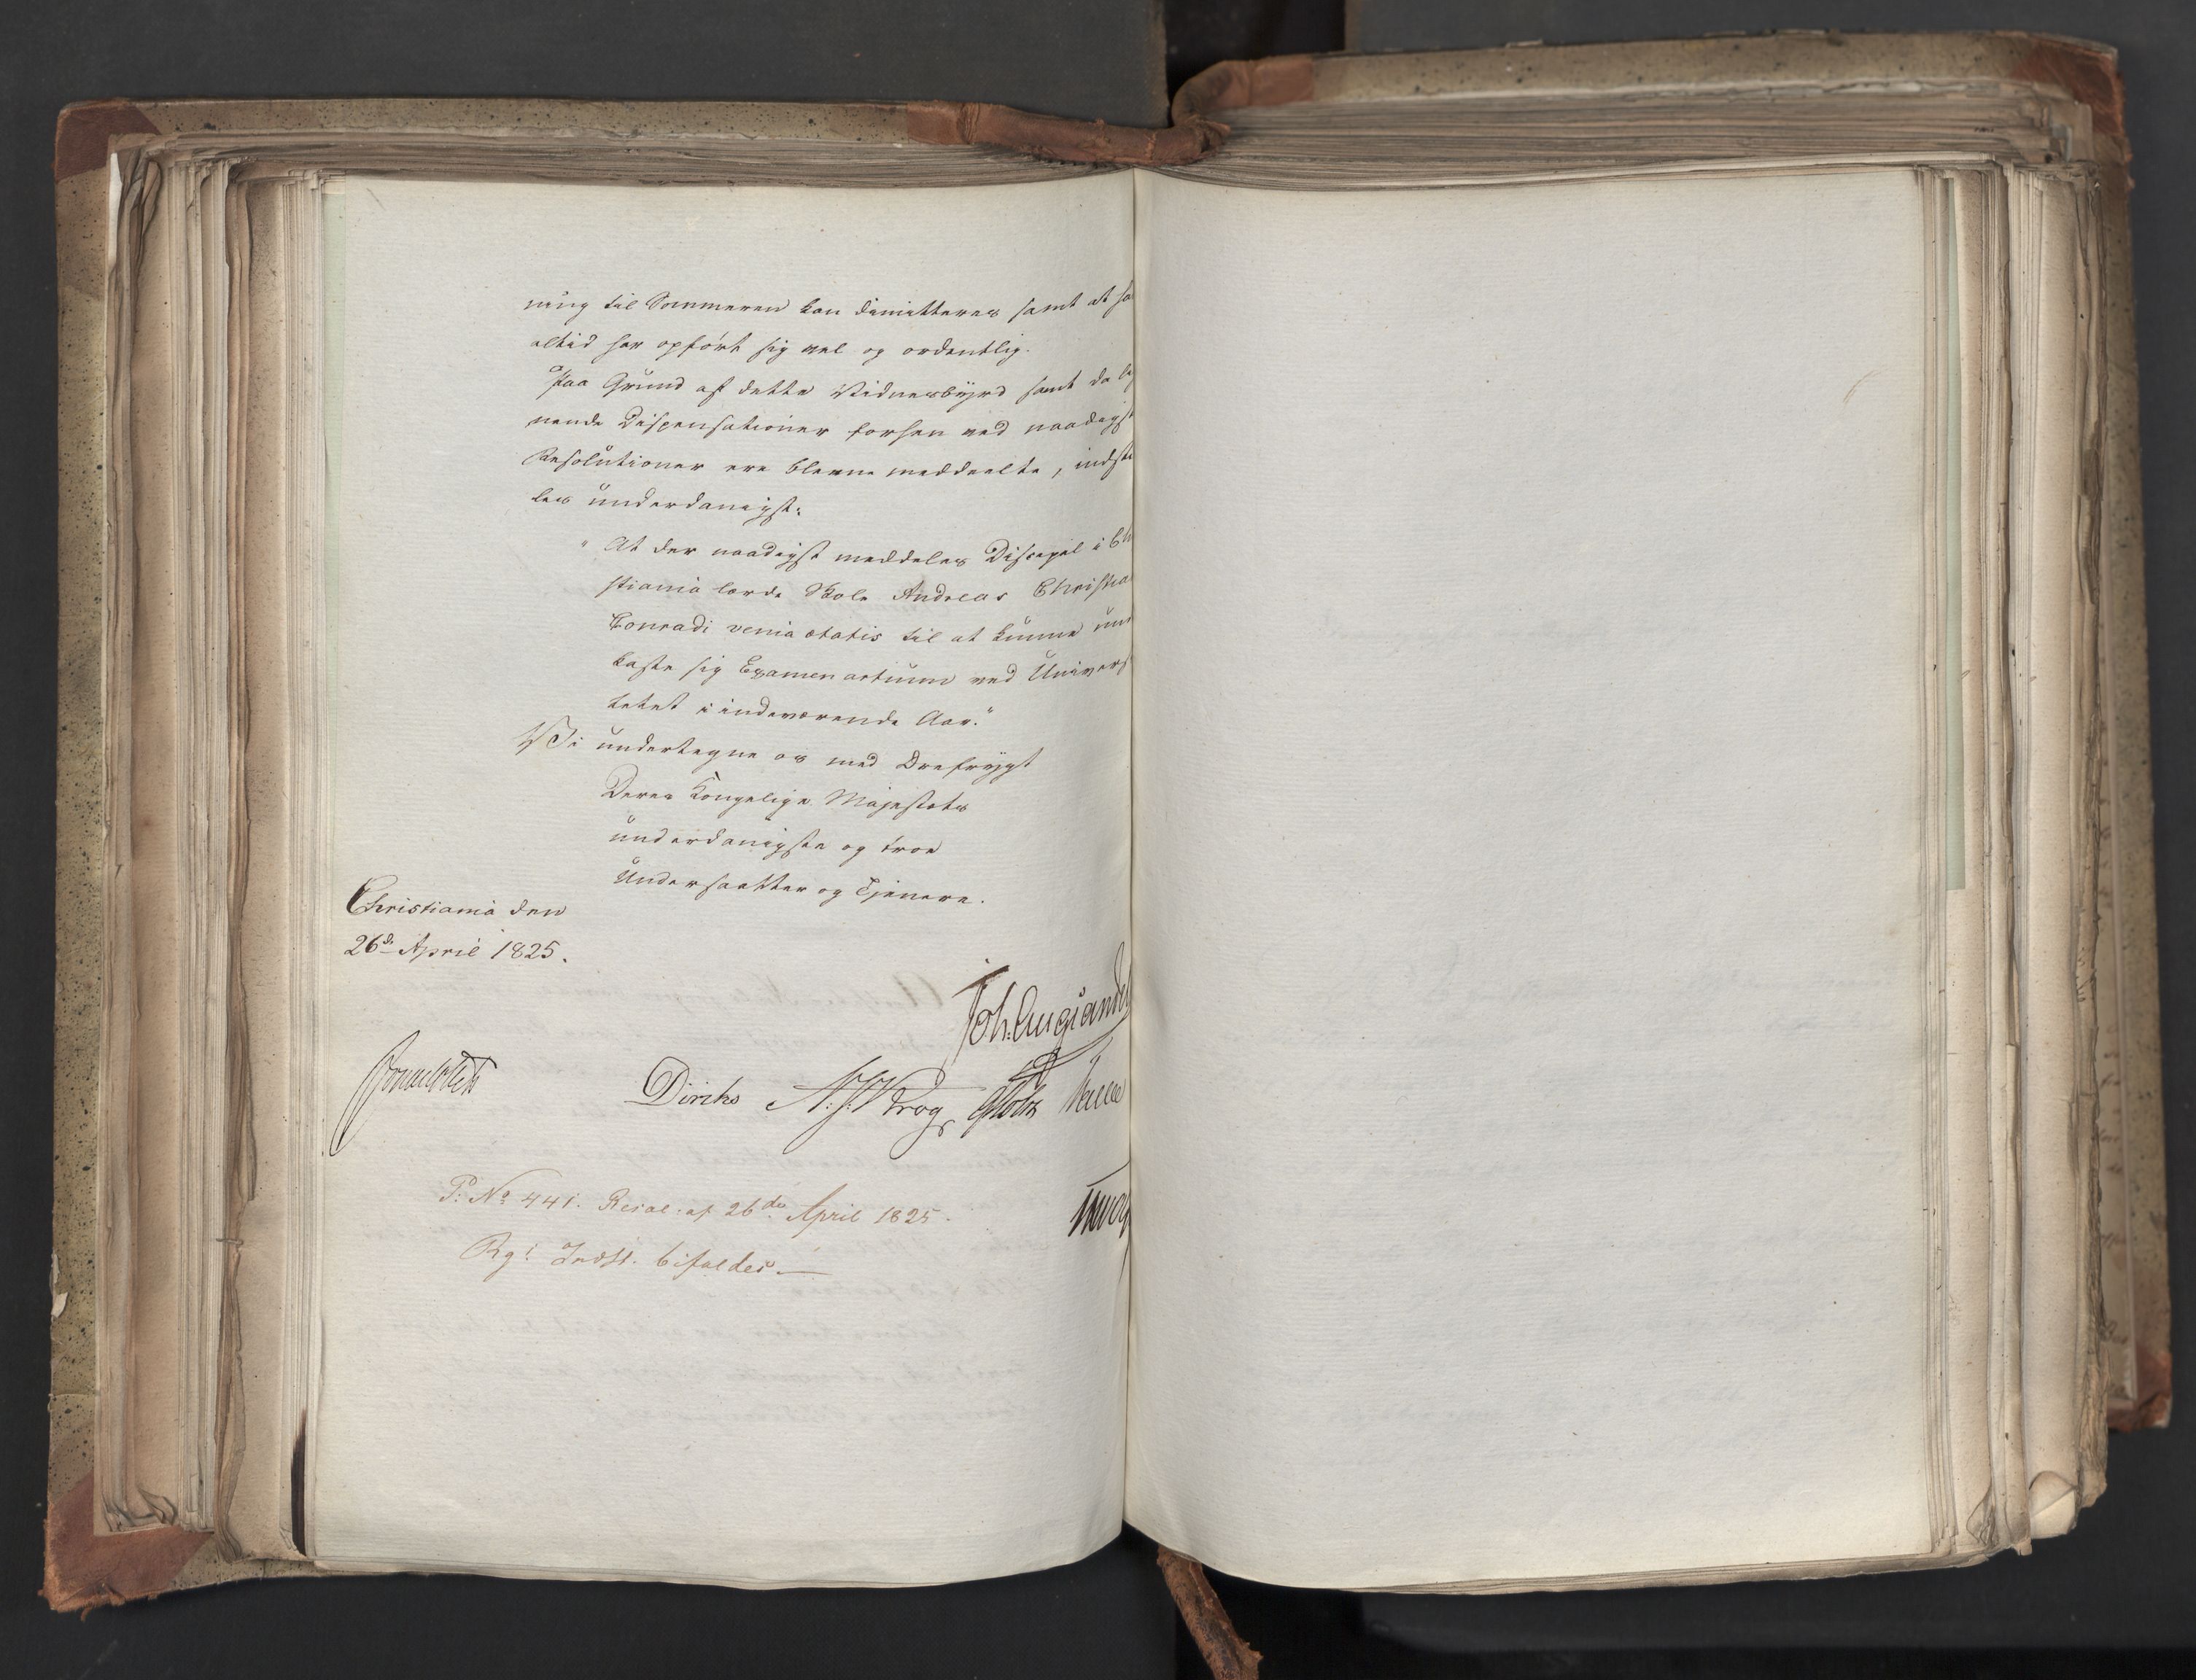 ning til Sommeren kan dimitteres samt at ha
altid har opført sig vel og ordentlig.
Paa Grund af dette Vidnesbyrd samt da lig
nende Dispensationer forhen ved naadigst
Resolutioner ere blevne meddeelte, indstil
les underdanigst:
"At der naadigst meddeles Discipel i Ch
stiania lærde Skole Andreas Christia
Conradi venia ætatis til at kunne und
kaste sig Examen artium ved Univers
tetet i indeværende Aar."
Vi undertegne os med Ærefrygt
Deres Kongelige Majestæts
underdanigste og troe
Undersaatter og Tjenere.
Christiania den
26de April 1825.
Joh. Aug. Sandel
Diriks N: J: Krog
P: No 441. Resol: af 26de April 1825.
Rg: Indst. bifaldes.—